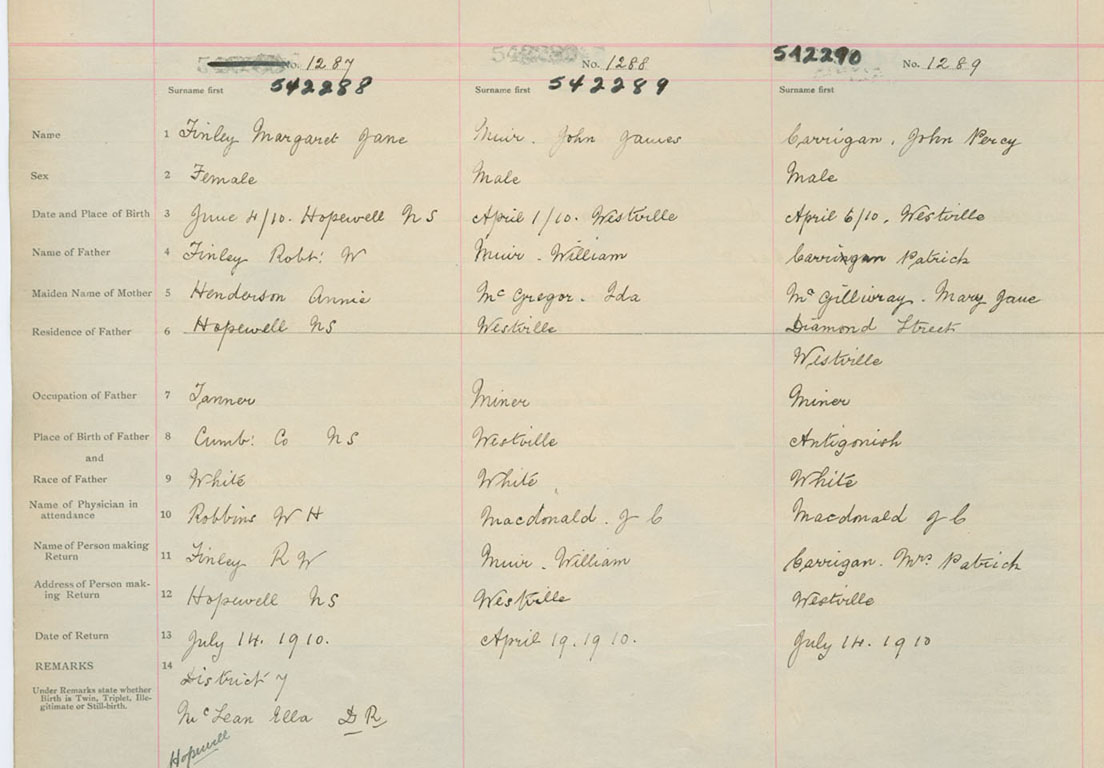 No. 1287 No. 1288 542290 No. 1289
542288 542289
Surname first Surname first Surname first
Name 1 Finley Margaret Jane Muir. John James Carrigan, John Percy
Sex 2 Female Male Male
Date and Place of Birth 3 June 4/10. Hopewell N S April 1/10. Westville April 6/10, Westville
Name of Father 4 Finley Robt: W Muir. William Carrigan Patrick
Maiden Name of Mother 5 Henderson Annie McGregor. Ida McGillivray. Mary Jane
Residence of Father 6 Hopewell NS Westville Diamond Street
Westville
Occupation of Father 7 Tanner Miner Miner
Place of Birth of Father 8 Cumb: Co NS Westville Antigonish
and
Race of Father 9 White White White
Name of Physician in
attendance 10 Robbins W H Macdonald. J C Macdonald J C
Name of Person making
Return 11 Finley R W Muir. William Carrigan. Mrs. Patrick
Address of Person mak-
ing Return 12 Hopewell NS Westville Westville
Date of Return 13 July 14. 1910. April 19. 1910. July 14. 1910
REMARKS 14 District 7
Under Remarks state whether
Birth is Twin, Triplet, Ille-
gitimate or Still-birth.
McLean Ella D R
Hopewell